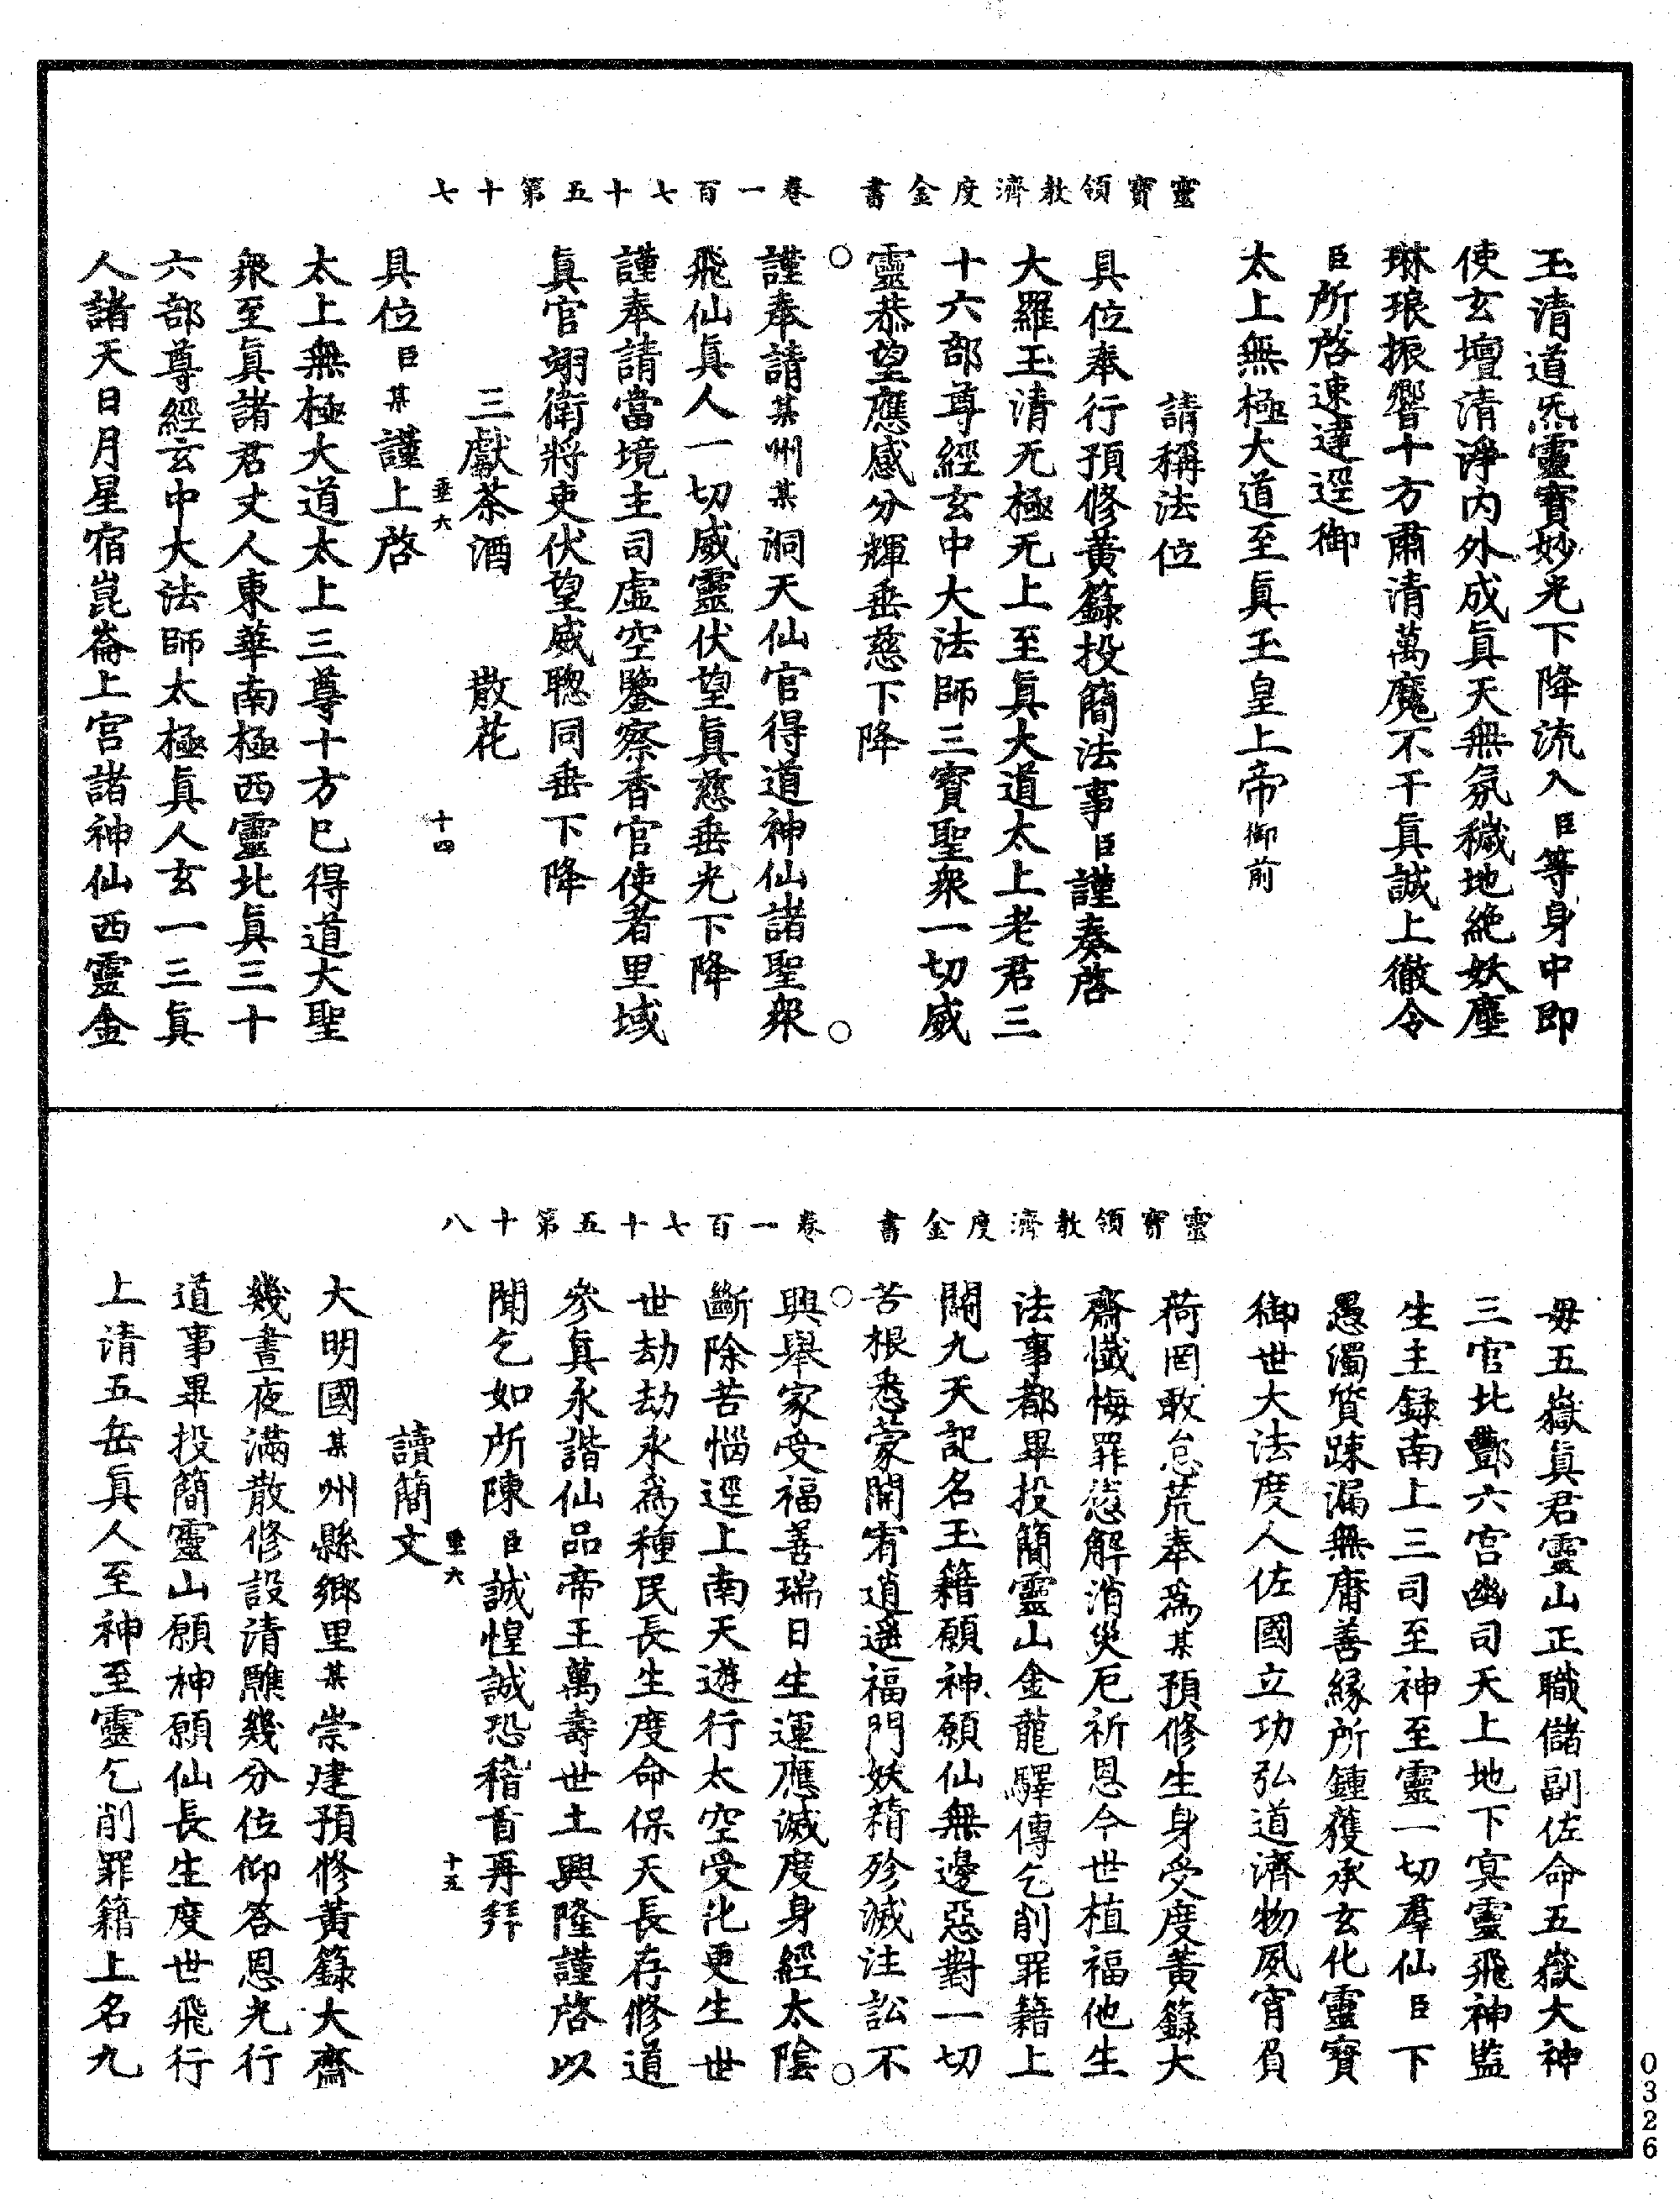 靈寶領教濟度金書　卷一百七十五第十七
玉清道炁靈寶妙光下降流入臣等身中即
使玄壇清淨內外成真天無氛穢地絕妖塵
琳琅振響十方肅清萬魔不干真誠上徹令
臣所啓速達逕御
太上無極大道至真玉皇上帝御前
請稱法位
具位奉行預修黃籙投簡法事臣謹奏啓
大羅玉清无極无上至真大道太上老君三
十六部尊經玄中大法師三寶聖眾一切威
靈恭望應感分輝垂慈下降
謹奉請某州某洞天仙官得道神仙諸聖眾
飛仙真人一切威靈伏望真慈垂光下降
謹奉請當境主司虛空鑒察香官使者里域
真官翊衛將吏伏望威聰同垂下降
三獻茶酒　散花
垂六　十四
具位臣某謹上啓
太上無極大道太上三尊十方已得道大聖
眾至真諸君丈人東華南極西靈北真三十
六部尊經玄中大法師太極真人玄一三真
人諸天日月星宿崑崙上宮諸神仙西靈金
靈寶領教濟度金書　卷一百七十五第十八
毋五嶽真君靈山正職儲副佐命五嶽大神
三官北酆六宮幽司天上地下冥靈飛神監
生主録南上三司至神至靈一切羣仙臣下
愚濁質踈漏無庸善緣所鍾獲承玄化靈寶
御世大法度人佐國立功弘道濟物夙宵負
荷罔敢怠荒奉為某預修生身受度黃籙大
齋懺悔罪愆解消災厄祈恩今世植福他生
法事都畢投簡靈山金龍驛傳乞削罪籍上
關九天記名玉籍願神願仙無邊惡對一切
苦根悉蒙開宥逍遙福門妖精殄滅注訟不
興舉家受福善瑞日生運應滅度身經太陰
斷除苦惱逕上南天遊行太空受化更生世
世劫劫永為種民長生度命保天長存修道
參真永諧仙品帝王萬壽世土興隆謹啓以
聞乞如所陳臣誠惶誠恐稽首再拜
垂六　十五
讀簡文
大明國某州縣鄉里某崇建預修黃籙大齋
幾晝夜滿散修設清醮幾分位仰答恩光行
道事畢投簡靈山願神願仙長生度世飛行
上清五岳真人至神至靈乞削罪籍上名九
0326